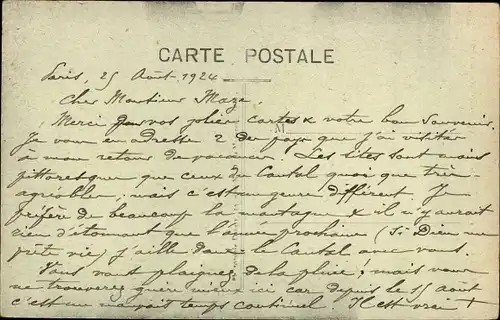 CARTE POSTALE
Paris, 25 Août 1924
Cher Monsieur Maze
Merci pour vos jolies cartes & votre bon souvenir.
Je vous en adresse 2 du pays que j'ai visité
à mon retour de vacances. Les sites sont moins
pittoresques que ceux du Cantal quoi que très
agréables, mais c'est un genre différent. Je
préfère de beaucoup la montagne & il n'y aurait
rien d'étonnant que l'année prochaine (si Dieu me
prête vie) j'aille dans le Cantal avec vous.
Vous vous plaignez de la pluie! mais vous
ne trouverez guère mieux ici car depuis le 15 août
c'est un mauvais temps continuel. Il est vrai